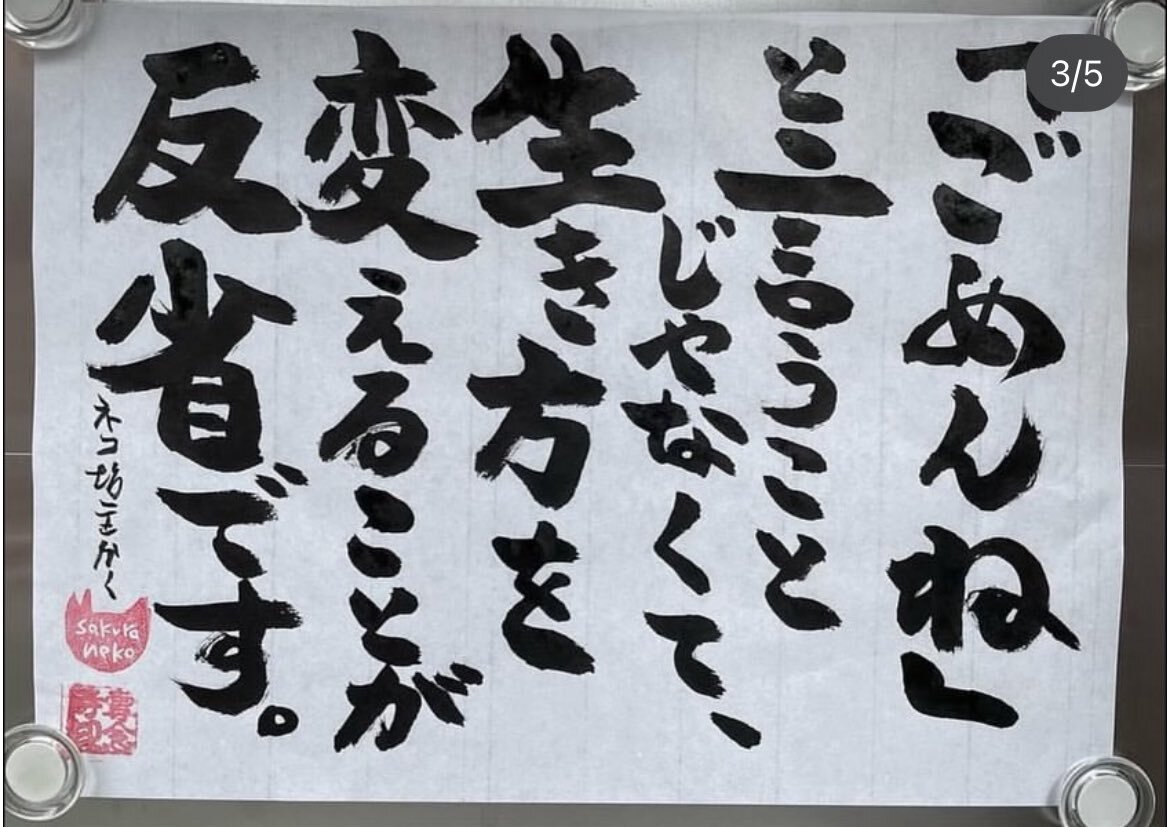 「ごめんね」
と言うこと
じゃなくて、
生き方を
変えることが
反省です。
ネコ坊主かく
sakura
neko
3/5